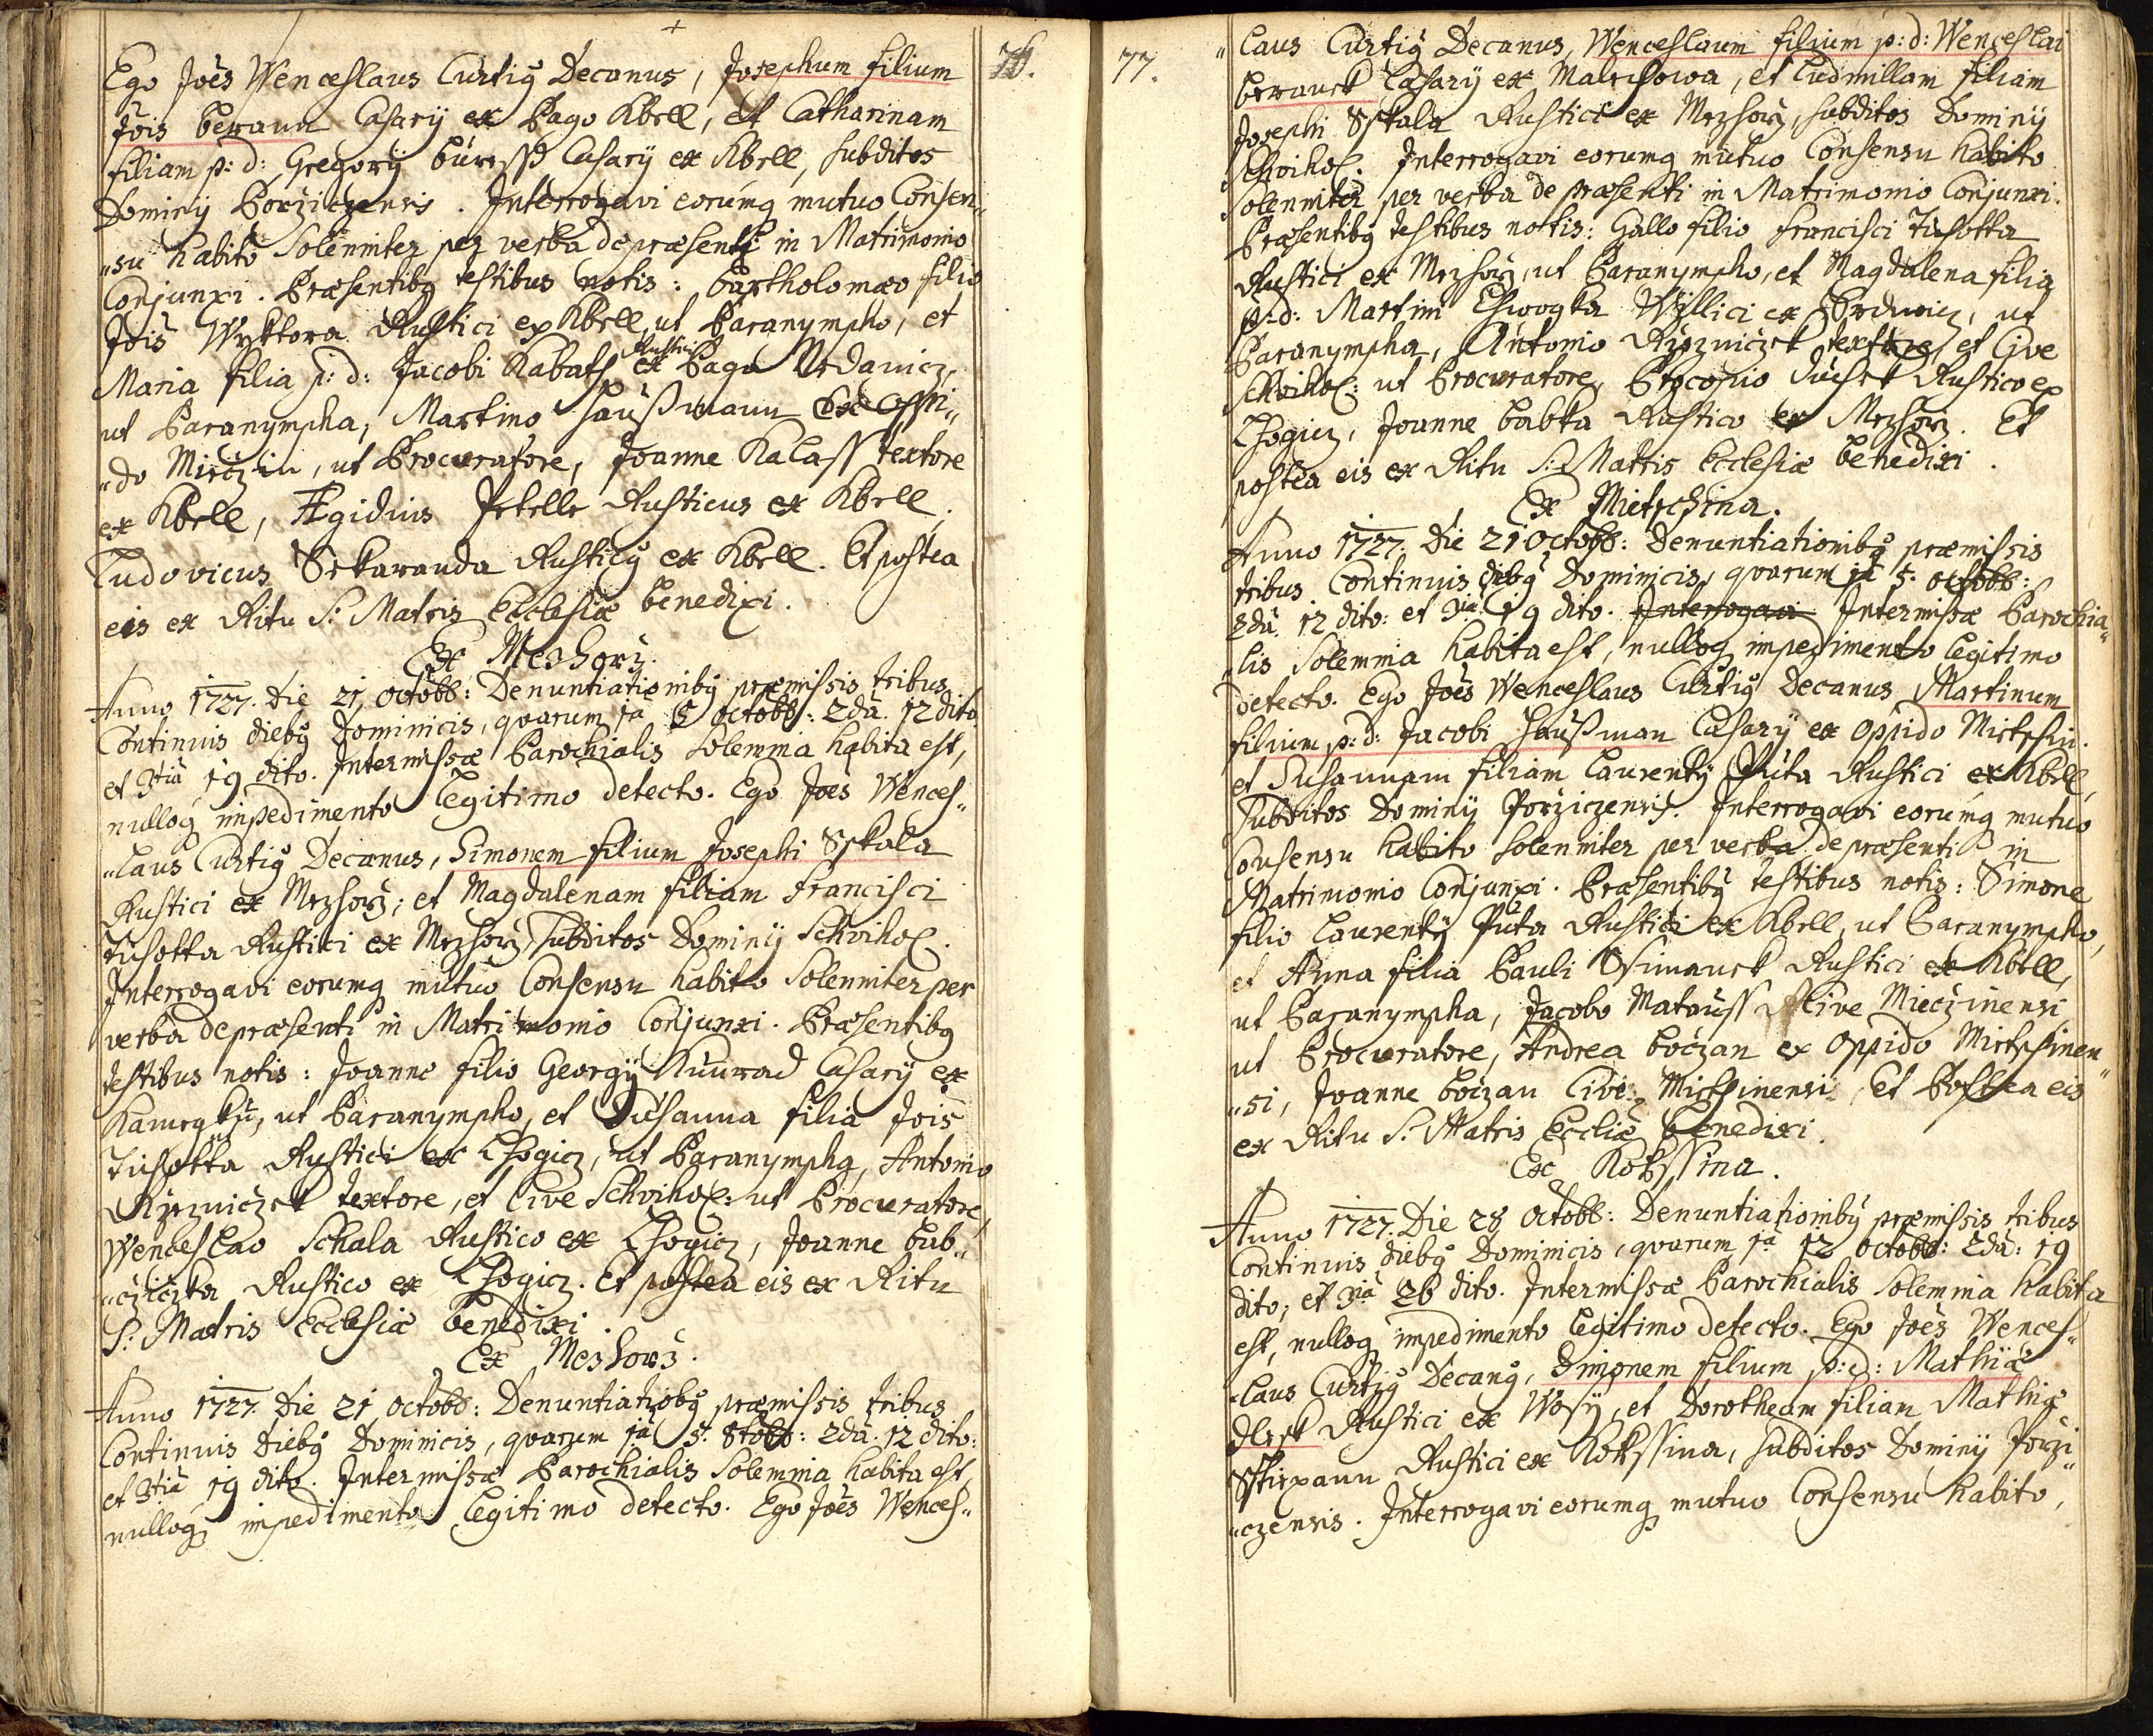 76.
Ego Joês Wenceslaus Curtig Decanus, Josephum filium
Jois berann Casarij ex Pago Kbell, et Catharinam
filiam p: d: Gregorij Buressh Casarij ex Kbell, subditos
Dominij Porziczensis. Interrogavi eorumq mutuo Consen„
„su habito Solenniter per verba de præsenti in Matrimonio
Conjunxi. Præsentibg testibus notis: Bartholomæo filio
Jois Wyktora Rustici ex Kbell, ut Paranympho, et
Maria filia p: d: Jacobi Kabath Rustici ex Pago Urdanicz,
ut Paranympha, Martino Haußmann ex Oppi„
„do Mieczin, ut Procuratore, Joanne Kalass textore
ex Kbell, Ægidius Petelle Rusticus ex Kbell,
Ludovicus Sskaranda Rusticg ex Kbell. Et postea
eis ex Ritu S: Matris Ecclesiæ benedixi.
Ex Meshorz.
Anno 1727. Die 21 Octobb: Denuntiationibg præmissis tribus
Continuis diebg Dominicis, quarum 1a 5 Octobb: 2da 12 dito
et 3tia 19 dito. Inter missæ Parochialis Solemnia habita est,
nulloq impedimento Legitimo detecto. Ego Joês Wences„
„laus Curtig Decanus, Simonem filium Josephi Sskala
Rustici ex Mezhorz; et Magdalenam filiam Francisci
Tusotka Rustici ex Mezhorz, Subditos Dominij Schvihov.
Interrogavi eorumq mutuo Consensu habito Solenniter per
verba de præsenti in Matrimonio Conjunxi. Præsentibg
testibus notis: Joanne filio Georgij Kunrad Casarij ex
Kameyku, ut Paranympho, et Susanna filia Jois
Tusotka Rustici ex Lhogicz, ut Paranympha, Antonio
Ruzniczek textore, et Cive Schvihov: ut Procuratore,
Wenceslao Schala Rustico ex Lhogicz, Joanne Bub„
„cziczka Rustico ex Lhogicz. Et postea eis ex Ritu
S: Matris Ecclesiæ benedixi.
Ex Meshorz.
Anno 1727. Die 21 Octobb: Denuntiatiobg præmissis tribus
Continuis diebg Dominicis, quarum 1a 5. 8tobb: 2da. 12 dito:
et 3tia 19 dito. Inter missæ Parochialis Solemnia habita est,
nulloq impedimento Legitimo detecto. Ego Joês Wences„
77.
„laus Curtig Decanus, Wenceslaum filium p: d: Wenceslai
beranek Casarij ex Malechowa, et Ludmillam filiam
Josephi Sskala Rustici ex Mezhorz, subditos Dominij
Schvihov. Interrogavi eorumq mutuo Consensu habito
Solenniter per verba de præsenti in Matrimonio Conjunxi.
Præsentibg testibus nottis: Gallo filio Francisci Tusotka
Rustici ex Mezhorz, ut Paranympho, et Magdalena filia
p: d: Martini Chwogka Willici ex Borzuwicz, ut
Paranympha, Antonio Ruzniczek textore, et Cive
Schvihov: ut Procuratore, Procopio Duchek Rustico ex
Lhogicz, Joanne babka Rustico ex Mezhorz. Et
postea eis ex Ritu S: Matris Ecclesiæ benedixi.
Ex Mietschina.
Anno 1727. Die 21 Octobb: Denuntiationibg præmissis
tribus Continuis diebg Dominicis, quarum 1a 5. Octobb:
2da 12 dito: et 3ia 19 dito. Interrogavi Inter missæ Parochia„
„lis Solemnia habita est, nulloq impedimento legitimo
detecto. Ego Joês Wenceslaus Curtig Decanus Martinum
filium p: d: Jacobi Haußman Casarij ex Oppido Mietschin.
et Susannam filiam Laurentij Puta Rustici ex Kbell,
Subditos Dominij Porziczensis. Interrogavi eorumq mutuo
Consensu habito solenniter per verba de præsenti in
Matrimonio Conjunxi. Præsentibg testibus notis: Simone
filio Laurentij Puta Rustici ex Kbell, ut Paranympho,
et Anna filia Pauli Ssimanek Rustici ex Kbell,
ut Paranympha, Jacobo Matauss Cive Mieczinensi
ut Procuratore, Andrea boczan ex Oppido Mietschinen„
„si, Joanne boczan Cive Mietschinensi, Et Postea eis
ex Ritu S. Matris Eccliæ benedixi.
Ex Kokssina.
Anno 1727. Die 28 Octobb: Denuntiationibg præmissis tribus
Continuis diebg Dominicis, quarum 1a 12 Octobb: 2da: 19
dito, et 3ia 26 dito. Inter missæ Parochialis Solemnia habita
est, nulloq impedimento Legitimo detecto. Ego Joês Wences„
„laus Curtig Decang, Simonem filium p: d: Mathiæ
Rustici ex et Dorotheam filiam Mathiæ
Rustici ex Kokssina, subditos Dominij Porzi„
„czensis. Interrogavi eorumq mutuo Consensu habito,